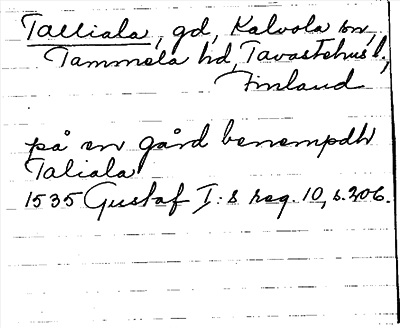 Talliala, gd, Kalvola sn,
Tammela hd, Tavastehus l.,
Finland
på en gård benempdh
Taliala
1535 Gustaf I:s reg. 10, s. 206.